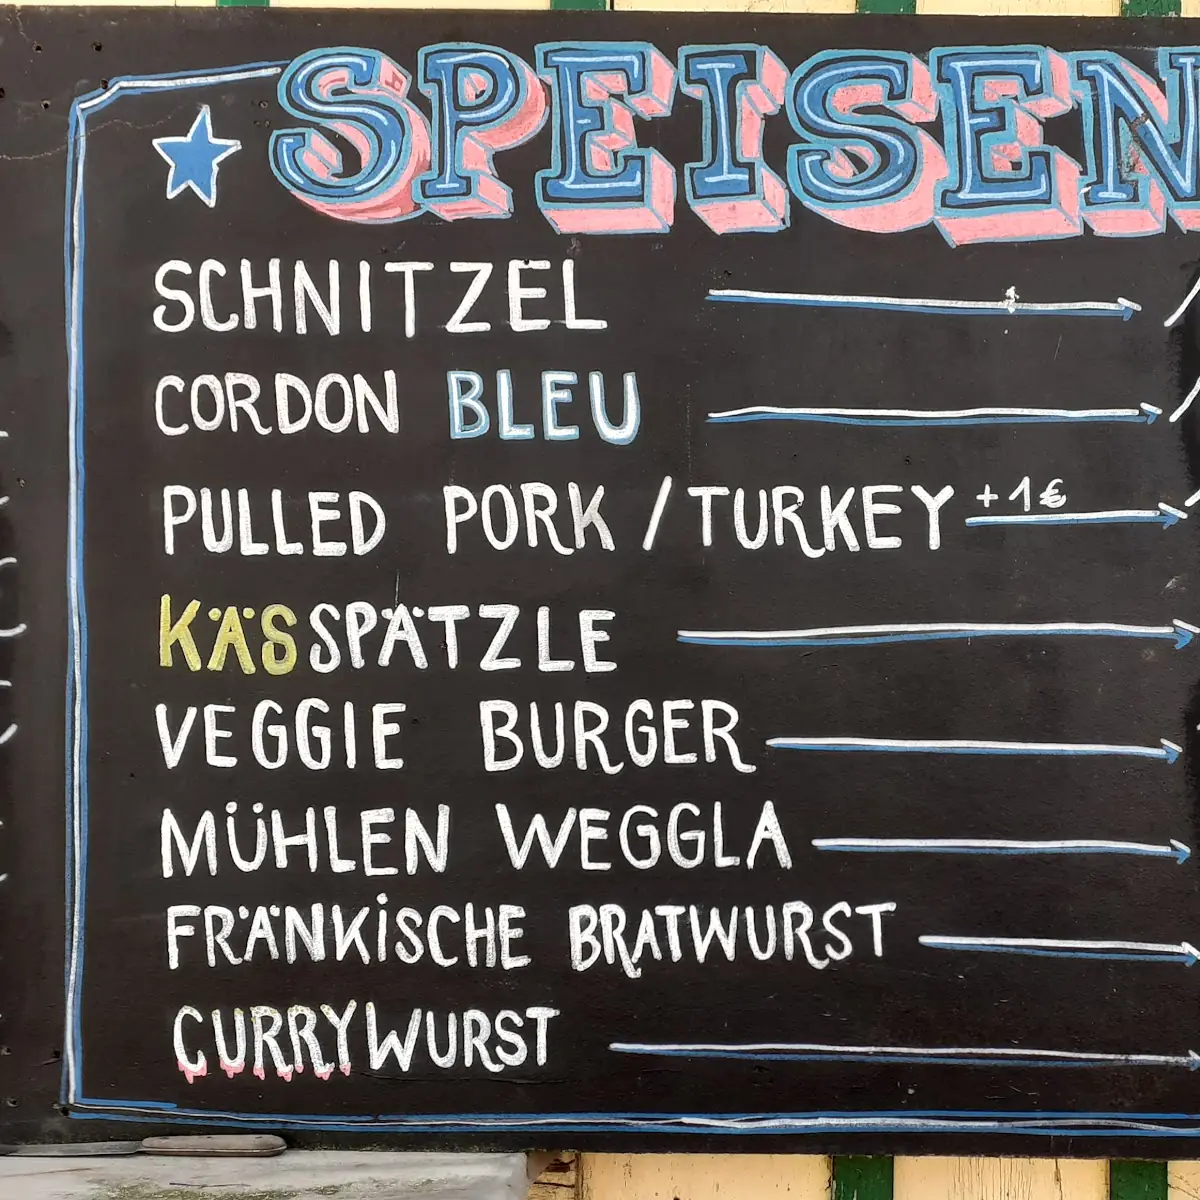 SPEISEN
SCHNITZEL
CORDON BLEU
PULLED PORK / TURKEY +1€
KÄSSPÄTZLE
VEGGIE BURGER
MÜHLEN WEGGLA
FRÄNKISCHE BRATWURST
CURRYWURST